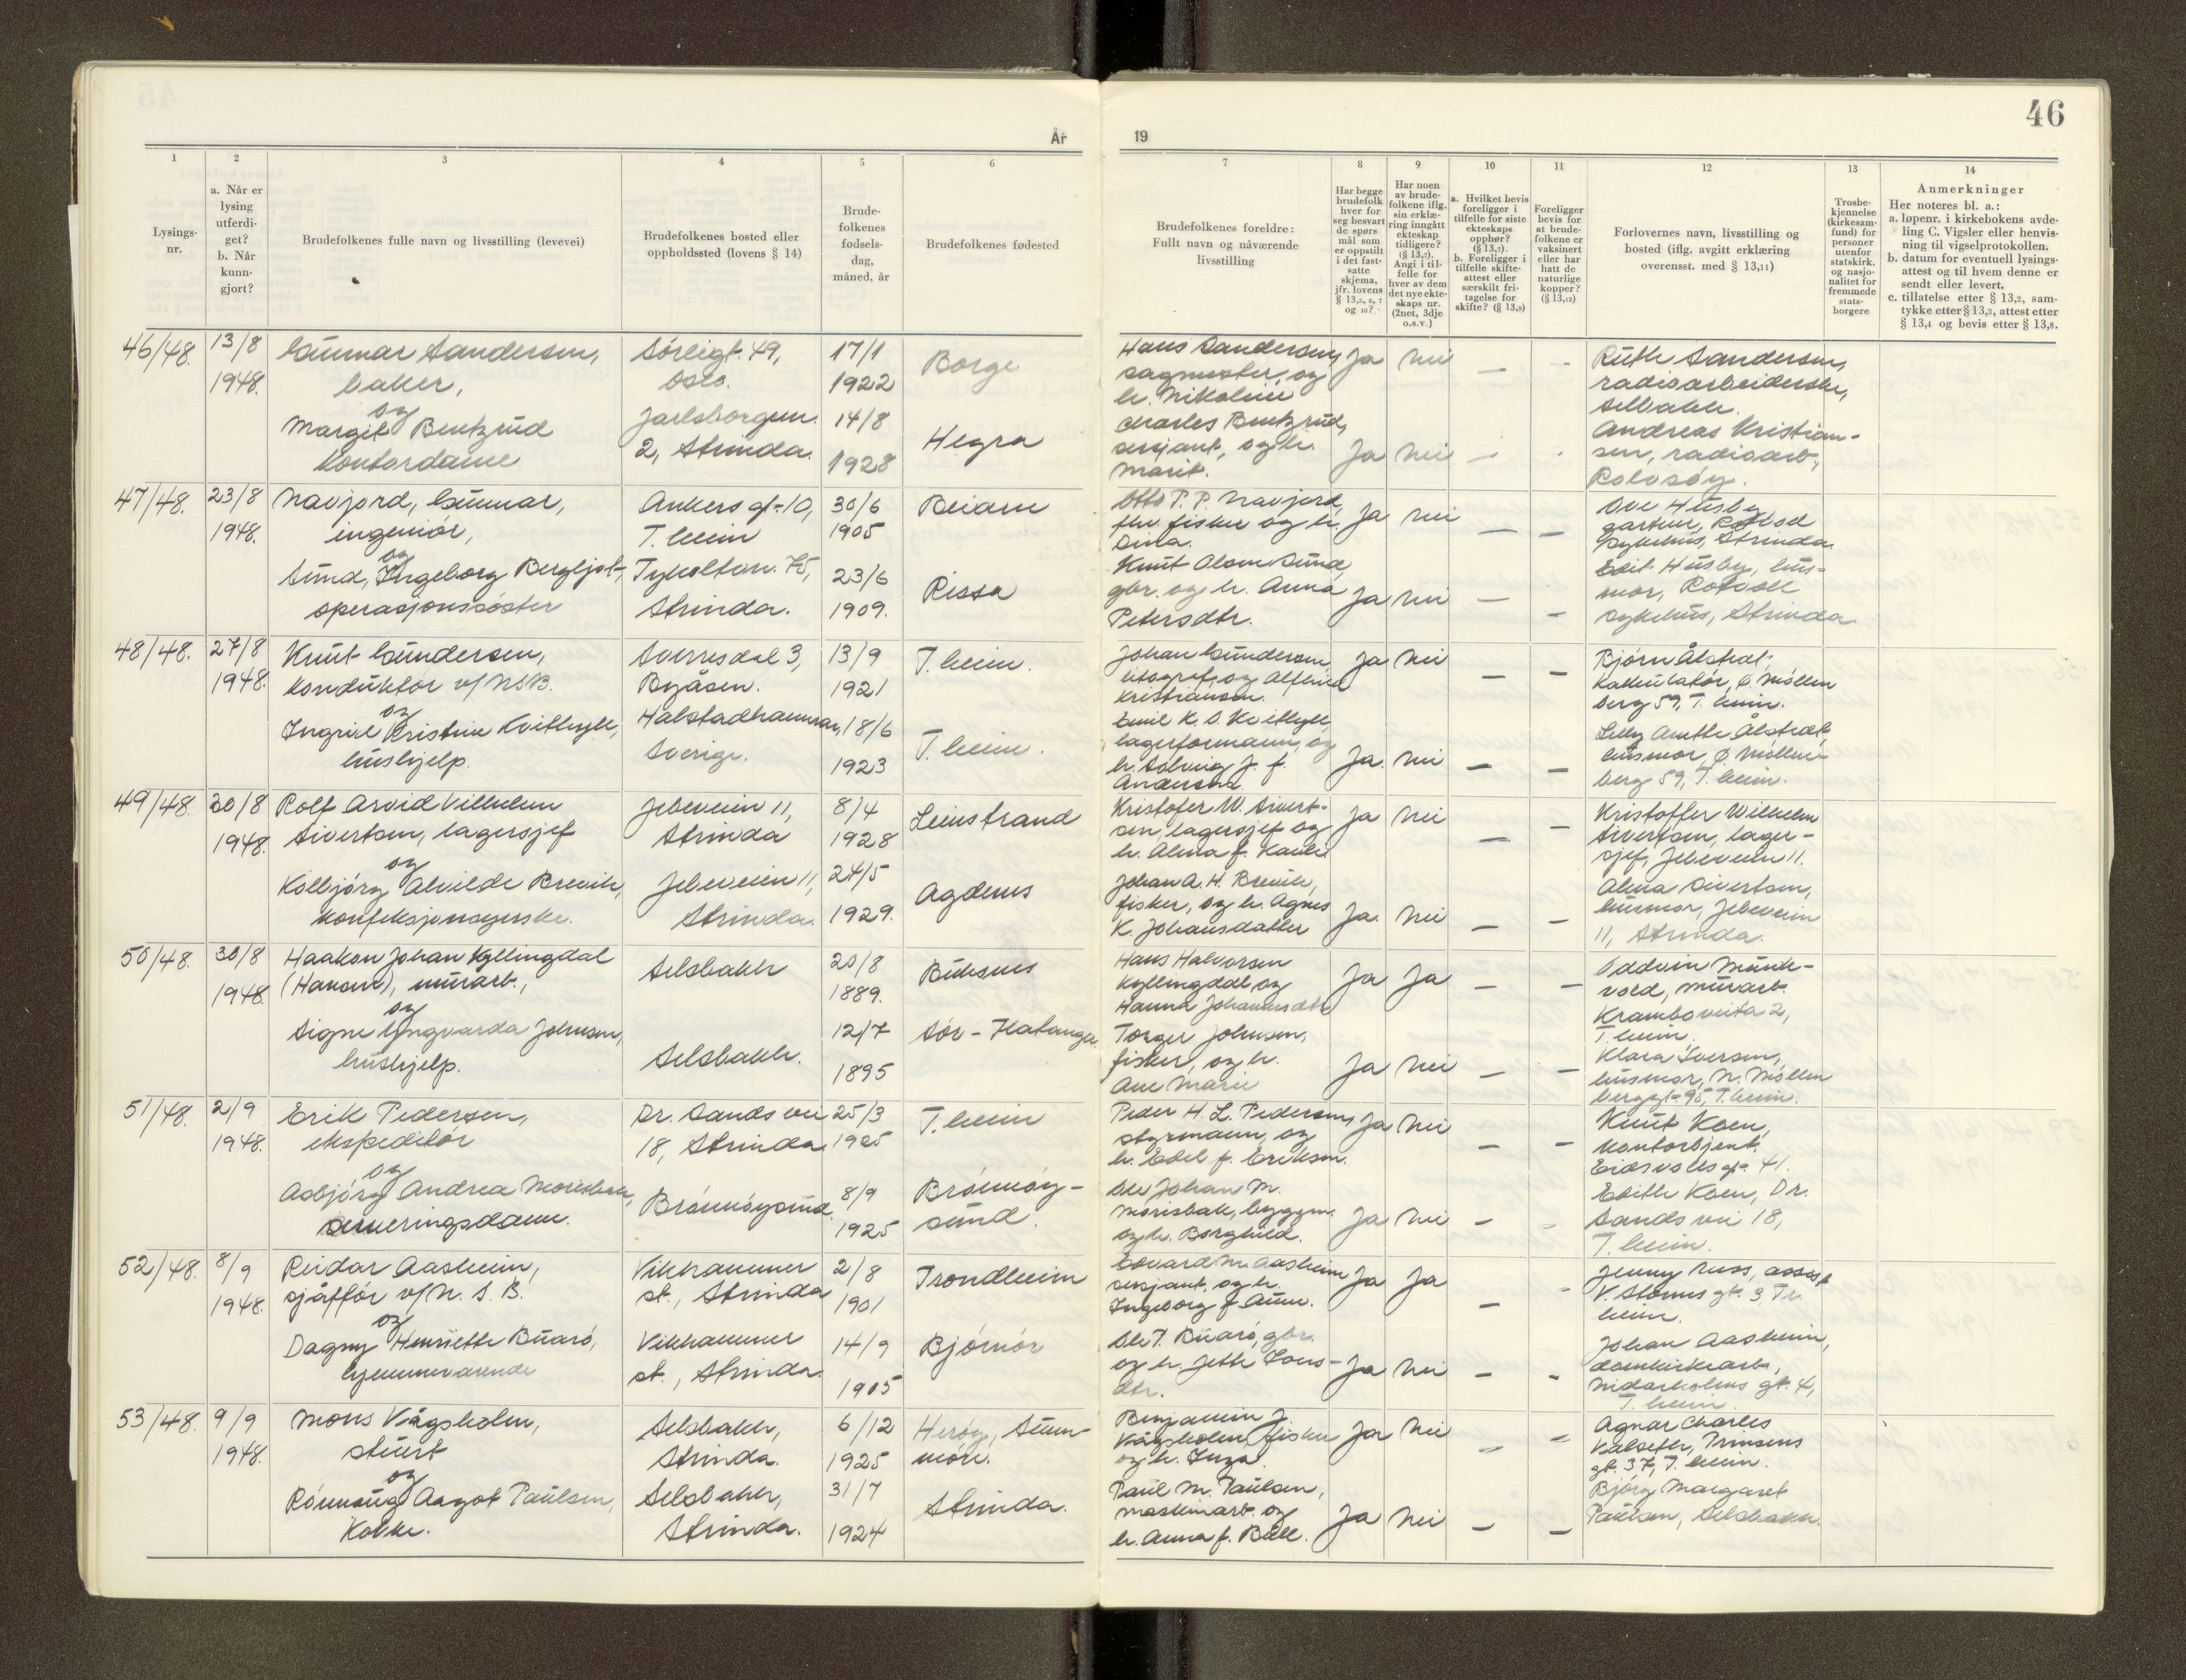 46
År 19
1
2
3
4
5
6
7
8
9
10
11
12
13
14
Lysings-
nr.
a. Når er
lysing
utferdi-
get?
b. Når
kunn-
gjort?
Brudefolkenes fulle navn og livsstilling (levevei)
Brudefolkenes bosted eller
oppholdssted (lovens § 14)
Brude-
folkenes
fødsels-
dag,
måned, år
Brudefolkenes fødested
Brudefolkenes foreldre:
Fullt navn og nåværende
livsstilling
Har begge
brudefolk
hver for
seg besvart
de spørs
mål som
er oppstilt
i det fast-
satte
skjema,
jfr. lovens
§ 13,5, 6, 7
og 10?
Har noen
av brude-
folkene iflg.
sin erklæ-
ring inngått
ekteskap
tidligere?
(§ 13,7).
Angi i til-
felle for
hver av dem
det nye ekte-
skaps nr.
(2net, 3dje
o.s.v.)
a. Hvilket bevis
foreligger i
tilfelle for siste
ekteskaps
opphør?
(§ 13,7).
b. Foreligger i
tilfelle skifte-
attest eller
særskilt fri-
tagelse for
skifte? (§ 13,9)
Foreligger
bevis for
at brude-
folkene er
vaksinert
eller har
hatt de
naturlige
kopper?
(§ 13,12)
Forlovernes navn, livsstilling og
bosted (iflg. avgitt erklæring
overensst. med § 13,11)
Trosbe-
kjennelse
(kirkesam-
fund) for
personer
utenfor
statskirk.
og nasjo-
nalitet for
fremmede
stats-
borgere
Anmerkninger
Her noteres bl. a.:
a. løpenr. i kirkebokens avde-
ling C. Vigsler eller henvis-
ning til vigselprotokollen.
b. datum for eventuell lysings-
attest og til hvem denne er
sendt eller levert.
c. tillatelse etter § 13,2, sam-
tykke etter § 13,3, attest etter
§ 13,4 og bevis etter § 13,8.
46/48.
13/8
1948.
Gunnar Sandersen,
baker,
og
Margit Bentzrud
kontordame
Sørligt. 49,
Oslo.
Jarlsborgvn.
2, Strinda.
17/1
1922
14/8
1928
Borge
Hegra
Hans Sandersen,
sagmester, og
h. Nikoline
Charles Bentzrud,
sersjant, og h.
Marit.
Ja nei —
Ja nei —
Ruth Sandersen,
radioarbeiderske,
Selbakk.
Andreas Kristian-
sen, radioarb.,
Rolvsøy.
47/48.
23/8
1948.
Navjord, Gunnar,
ingeniør,
og
Sund, Ingeborg Bergljot,
operasjonssøster
Ankers gt. 10,
T.heim
Tyholtvn. 75,
Strinda.
30/6
1905
23/6
1909.
Beiarn
Rissa
Otto P. P. Navjord,
fhv. fisker og h.
Knut Olsen Sund,
gbr. og h. Anna
Petersdtr.
Ja nei — —
Ja nei — —
Ove Husby,
gartner, Rotvoll
sykehus, Strinda.
Edit Husby, hus-
mor, Rotvoll
sykehus, Strinda
48/48.
27/8
1948.
Knut Gundersen,
konduktør v/ NSB.
og
Ingrid Kristine Kvithyll,
hushjelp.
Sverresdal 3,
Byåsen.
Halstadhammar,
Sverige.
13/9
1921
18/6
1923
T.heim.
T.heim.
Johan Gundersen,
litograf, og Alfhild
Kristiansen.
Emil K. O. Kvithyll,
lagerformann, og
h. Solveig J. f.
Andersen.
Ja nei — —
Ja. nei — —
Bjørn Ålstedt,
kalkulatør, Ø. Møllen
berg 59, T.heim.
Lilly Anethe Ålstedt,
husmor, Ø. Møllen-
berg 59, T.heim.
49/48.
30/8
1948.
Rolf Arvid Vilhelm
Sivertsen, lagersjef
og
Kolbjørg Alvilde Brevik,
konfeksjonssyerske.
Jebeveien 11,
Strinda
Jebeveien 11,
Strinda.
8/4
1928
24/5
1929.
Leinstrand
Agdenes
Kristofer W. Sivert-
sen, lagersjef og
h. Alma f.
Johan A. H. Brevik,
fisker, og h. Agnes
K. Johansdatter
Ja nei — —
Ja. nei — —
Kristoffer Wilhelm
Sivertsen, lager-
sjef, Jebeveien 11.
Alma Sivertsen,
husmor, Jebeveien
11, Strinda.
50/48.
30/8
1948
Haakon Johan Kyllingdal
(Hansen), murarb.,
og
Signe Yngvarda Johnsen,
hushjelp.
Selsbakk
Selsbakk.
20/8
1889.
12/7
1895
Buksnes
Sør-Hatanger
Hans Halvorsen
Kyllingdal og
Hanna Johannesdtr.
Torger Johnsen,
fisker, og h.
Ane Marie
Ja Ja — —
Ja nei — —
Oddvin Munk-
vold, murarb.
Kramboveita 2,
T.heim.
Klara Iversen,
husmor, N. Møllen
berggt. 95, T.heim.
51/48.
2/9
1948.
Erik Pedersen,
ekspeditør
og
Asbjørg Andrea Morisbak,
serveringsdame.
Dr. Sands vei
18, Strinda
Brønnøysund.
25/3
1925
8/9
1925
T.heim
Brønnøy-
sund.
Peder H. L. Pedersen,
styrmann, og
h. Edel f. Eriksen.
Ole Johan M.
Morisbak, byggm.
og h. Borghild.
Ja nei — —
Ja nei — —
Knut Koen,
kontorbjent.
Eidsvolls gt. 41.
Edith Koen, Dr.
Sands vei 18,
T.heim.
52/48.
8/9
1948.
Reidar Aasheim,
sjåffør v/ N. S. B.
og
Dagny Henriette Buarø,
hjemmeværende
Vikhammer
st., Strinda
Vikhammer
st., Strinda.
2/8
1901
14/9
1905
Trondheim
Bjørnør
Edvard M. Aasheim
sersjant, og h.
Ingeborg f. Aune.
Ole T. Buarø, gbr.
og h. Jette Tøns-
dtr.
Ja Ja — -
Ja nei — -
Jenny Russ, assist.
V. Storms gt. 3 Tr.
heim.
Johan Aasheim,
domkirkearb.,
Nidarholms gt. 4,
T.heim.
53/48.
9/9
1948.
Mons Vågsholm,
stuert
og
Rønnaug Aagot Paulsen,
kokke.
Selsbakk,
Strinda.
Selsbakk,
Strinda.
6/12
1925
31/7
1924
Herøy, Sunn-
møre.
Strinda.
Benjamin J.
Vågsholm, fisker
og h. Inga.
Paul M. Paulsen,
maskinarb. og
h. Anna f. Bakk.
Ja nei — —
Ja nei — —
Agnar Charles
Valseth, Prinsens
gt. 37, T.heim.
Bjørg Margaret
Paulsen, Selsbakk.